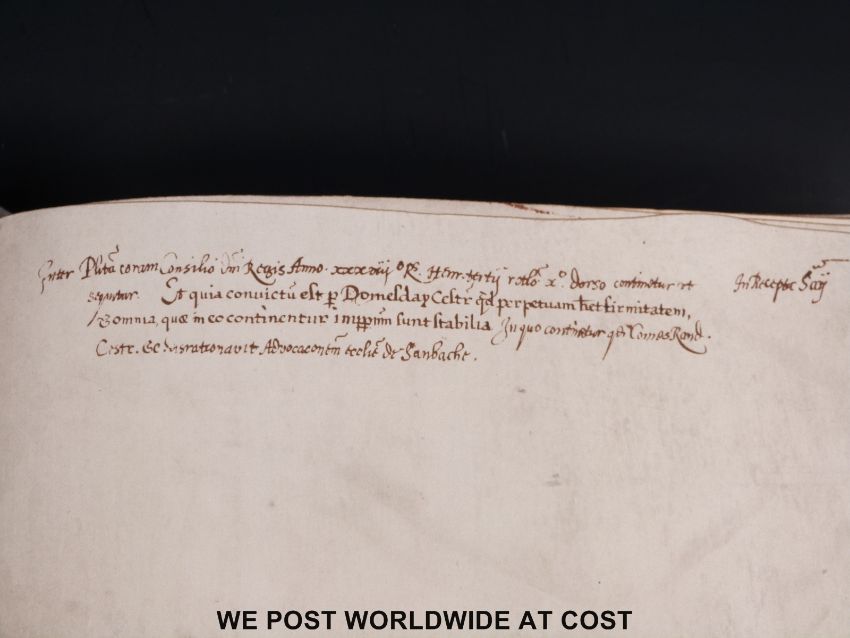 Inter Plita coram Consilio Dni Regis Anno xxxvii° Rs. Henr. tertij rotlo x°. dorso continetur ut
sequitur. Et quia convictu est per Domesday Cestr qd perpetuam het firmitatem,
& omnia, quæ in eo continentur inppm sunt stabilia. In quo continetur qd Comes Rand.
Cestr. &c disrationavit Advocaconem ecclie de Sanbache.
In Recepte Scaij
WE POST WORLDWIDE AT COST